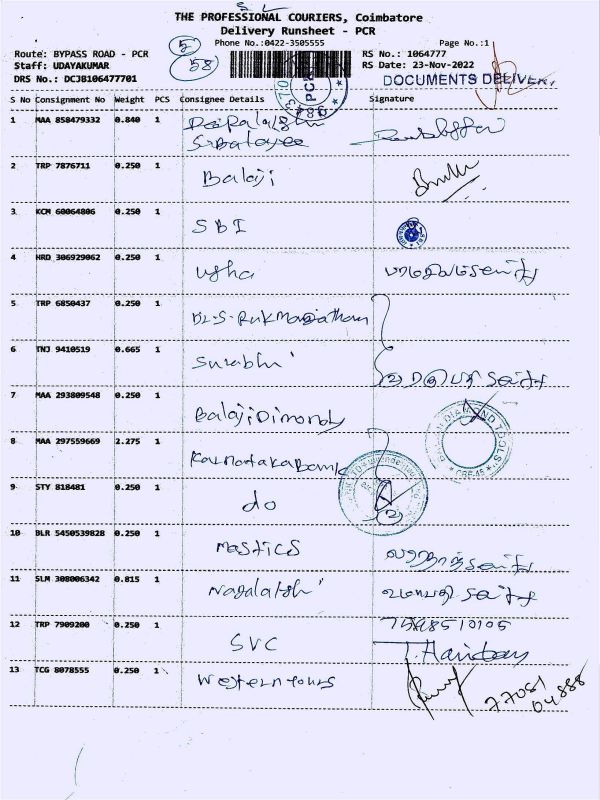 THE PROFESSIONAL COURIERS, Coimbatore
Delivery Runsheet - PCR
Phone No.:0422-3505555 Page No.:1
Route: BYPASS ROAD - PCR 5 RS No.: 1064777
Staff: UDAYAKUMAR 58 RS Date: 23-Nov-2022
DRS No.: DCJB106477701 DOCUMENTS DELIVERY
PCR
S No Consignment No Weight PCS Consignee Details Signature
1 MAA 858479332 0.840 1
2 TRP 7876711 0.250 1 Balaji
3 KCM 60064806 0.250 1 SBI
4 HRD 306929062 0.250 1 usha
5 TRP 6850437 0.250 1
6 TNJ 9410519 0.665 1 Surabhi
7 MAA 293809548 0.250 1 Balaji Dimonds
DIAMOND TOOLS
CBE-45
8 MAA 297559669 2.275 1 Karnataka Bank
9 STY 818481 0.250 1 do
10 BLR 5450539828 0.250 1 mastics
11 SLM 308006342 0.815 1
12 TRP 7909200 0.250 1 SVC
13 TCG 8078555 0.250 1 Western tours
77081
04888